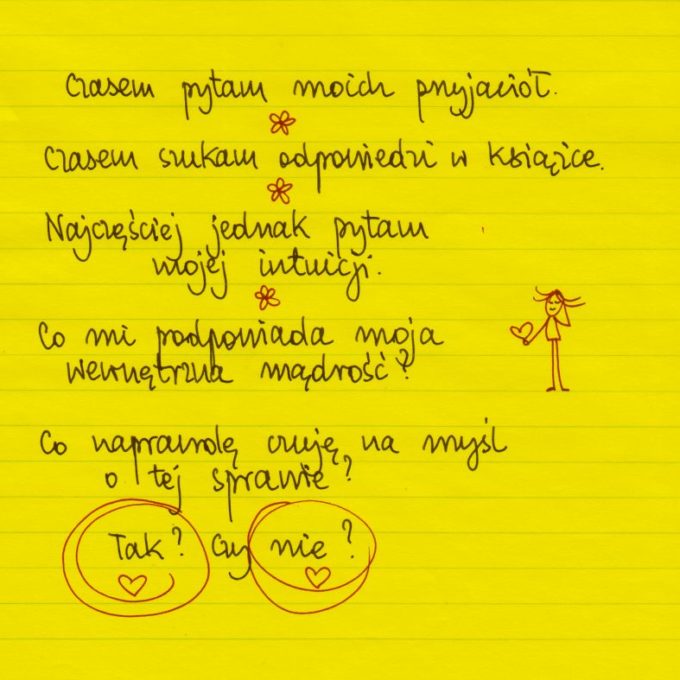 Czasem pytam moich przyjaciół.
Czasem szukam odpowiedzi w książce.
Najczęściej jednak pytam
mojej intuicji.
Co mi podpowiada moja
wewnętrzna mądrość?
Co naprawdę czuję na myśl
o tej sprawie?
Tak? Czy nie?